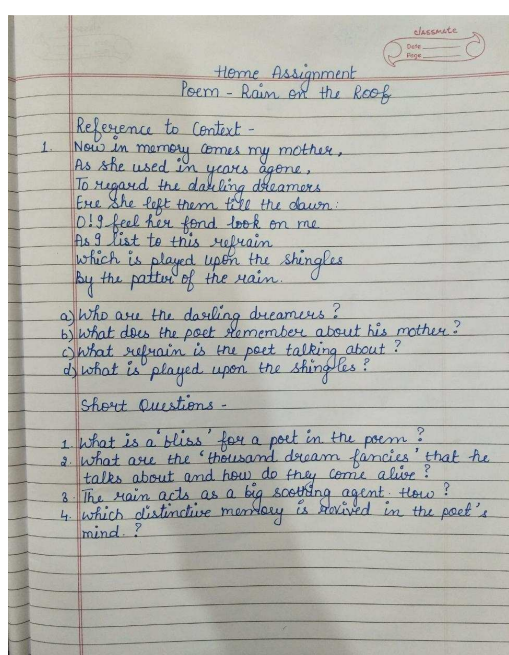 classmate
Date
Page
Home Assignment
Poem - Rain on the Roof
Reference to Context -
1. Now in memory comes my mother,
As she used in years agone,
To regard the darling dreamers
Ere she left them till the dawn:
O! I feel her fond look on me
As I list to this refrain
Which is played upon the shingles
By the patter of the rain.
a) Who are the darling dreamers?
b) What does the poet remember about his mother?
c) What refrain is the poet talking about?
d) What is played upon the shingles?
Short Questions -
1. What is a 'bliss' for a poet in the poem?
2. What are the 'thousand dream fancies' that he
talks about and how do they come alive?
3. The rain acts as a big soothing agent. How?
4. Which distinctive memory is revived in the poet's
mind.?